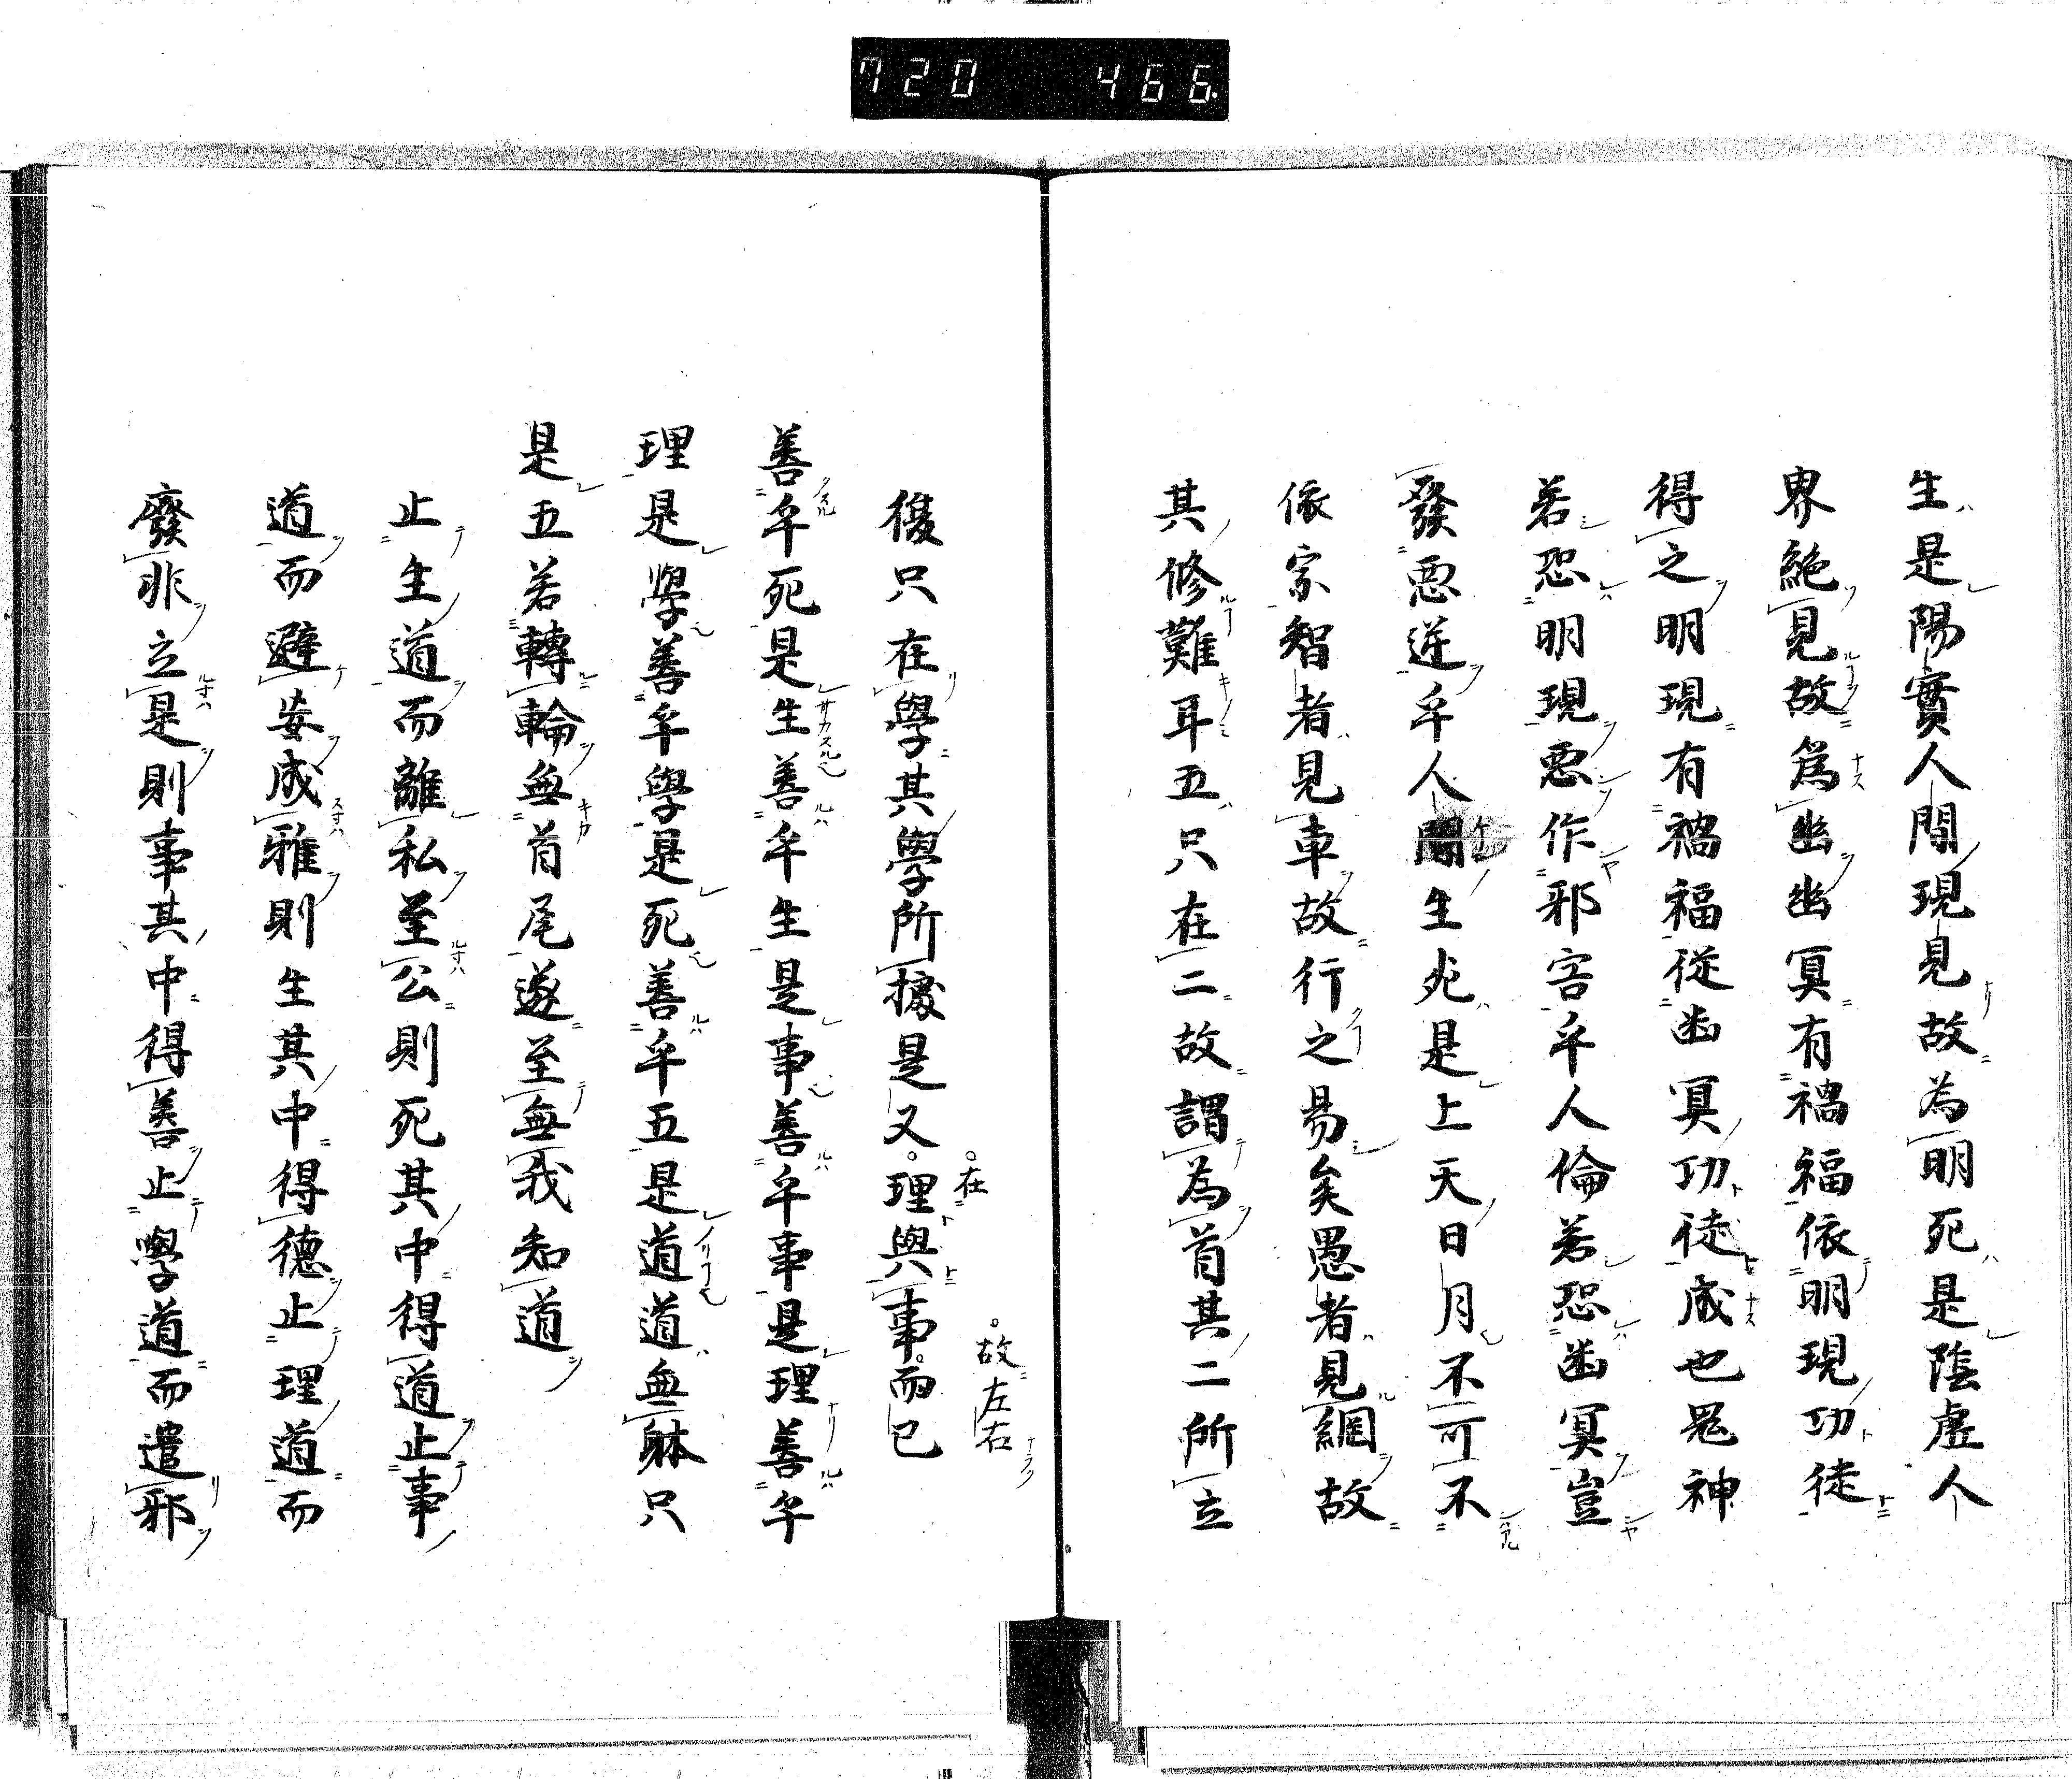 720 466.
生是陽實人間現見故為明死是陰虛人
界絕見故為幽幽冥有禍福依明現功徒
得之明現有禍福從幽冥功徒成也鬼神
若恐明現惡作邪害乎人倫若恐幽冥豈
發惡逆乎人間生死是上天日月不可不
依宗智者見車故行之易矣愚者見網故
其修難耳五只在二故謂為首其二所立
故左右
復只在學其學所據是又在理與事而已
善乎死是生善乎生是事善乎事是理善乎
理是學善乎學是死善乎五是道道無躰只
是五若轉輪無首尾遂至無我知道
止生道而離私至公則死其中得道止事
道而避妄成雅則生其中得德止理道而
廢非立是則事其中得善止學道而遣邪